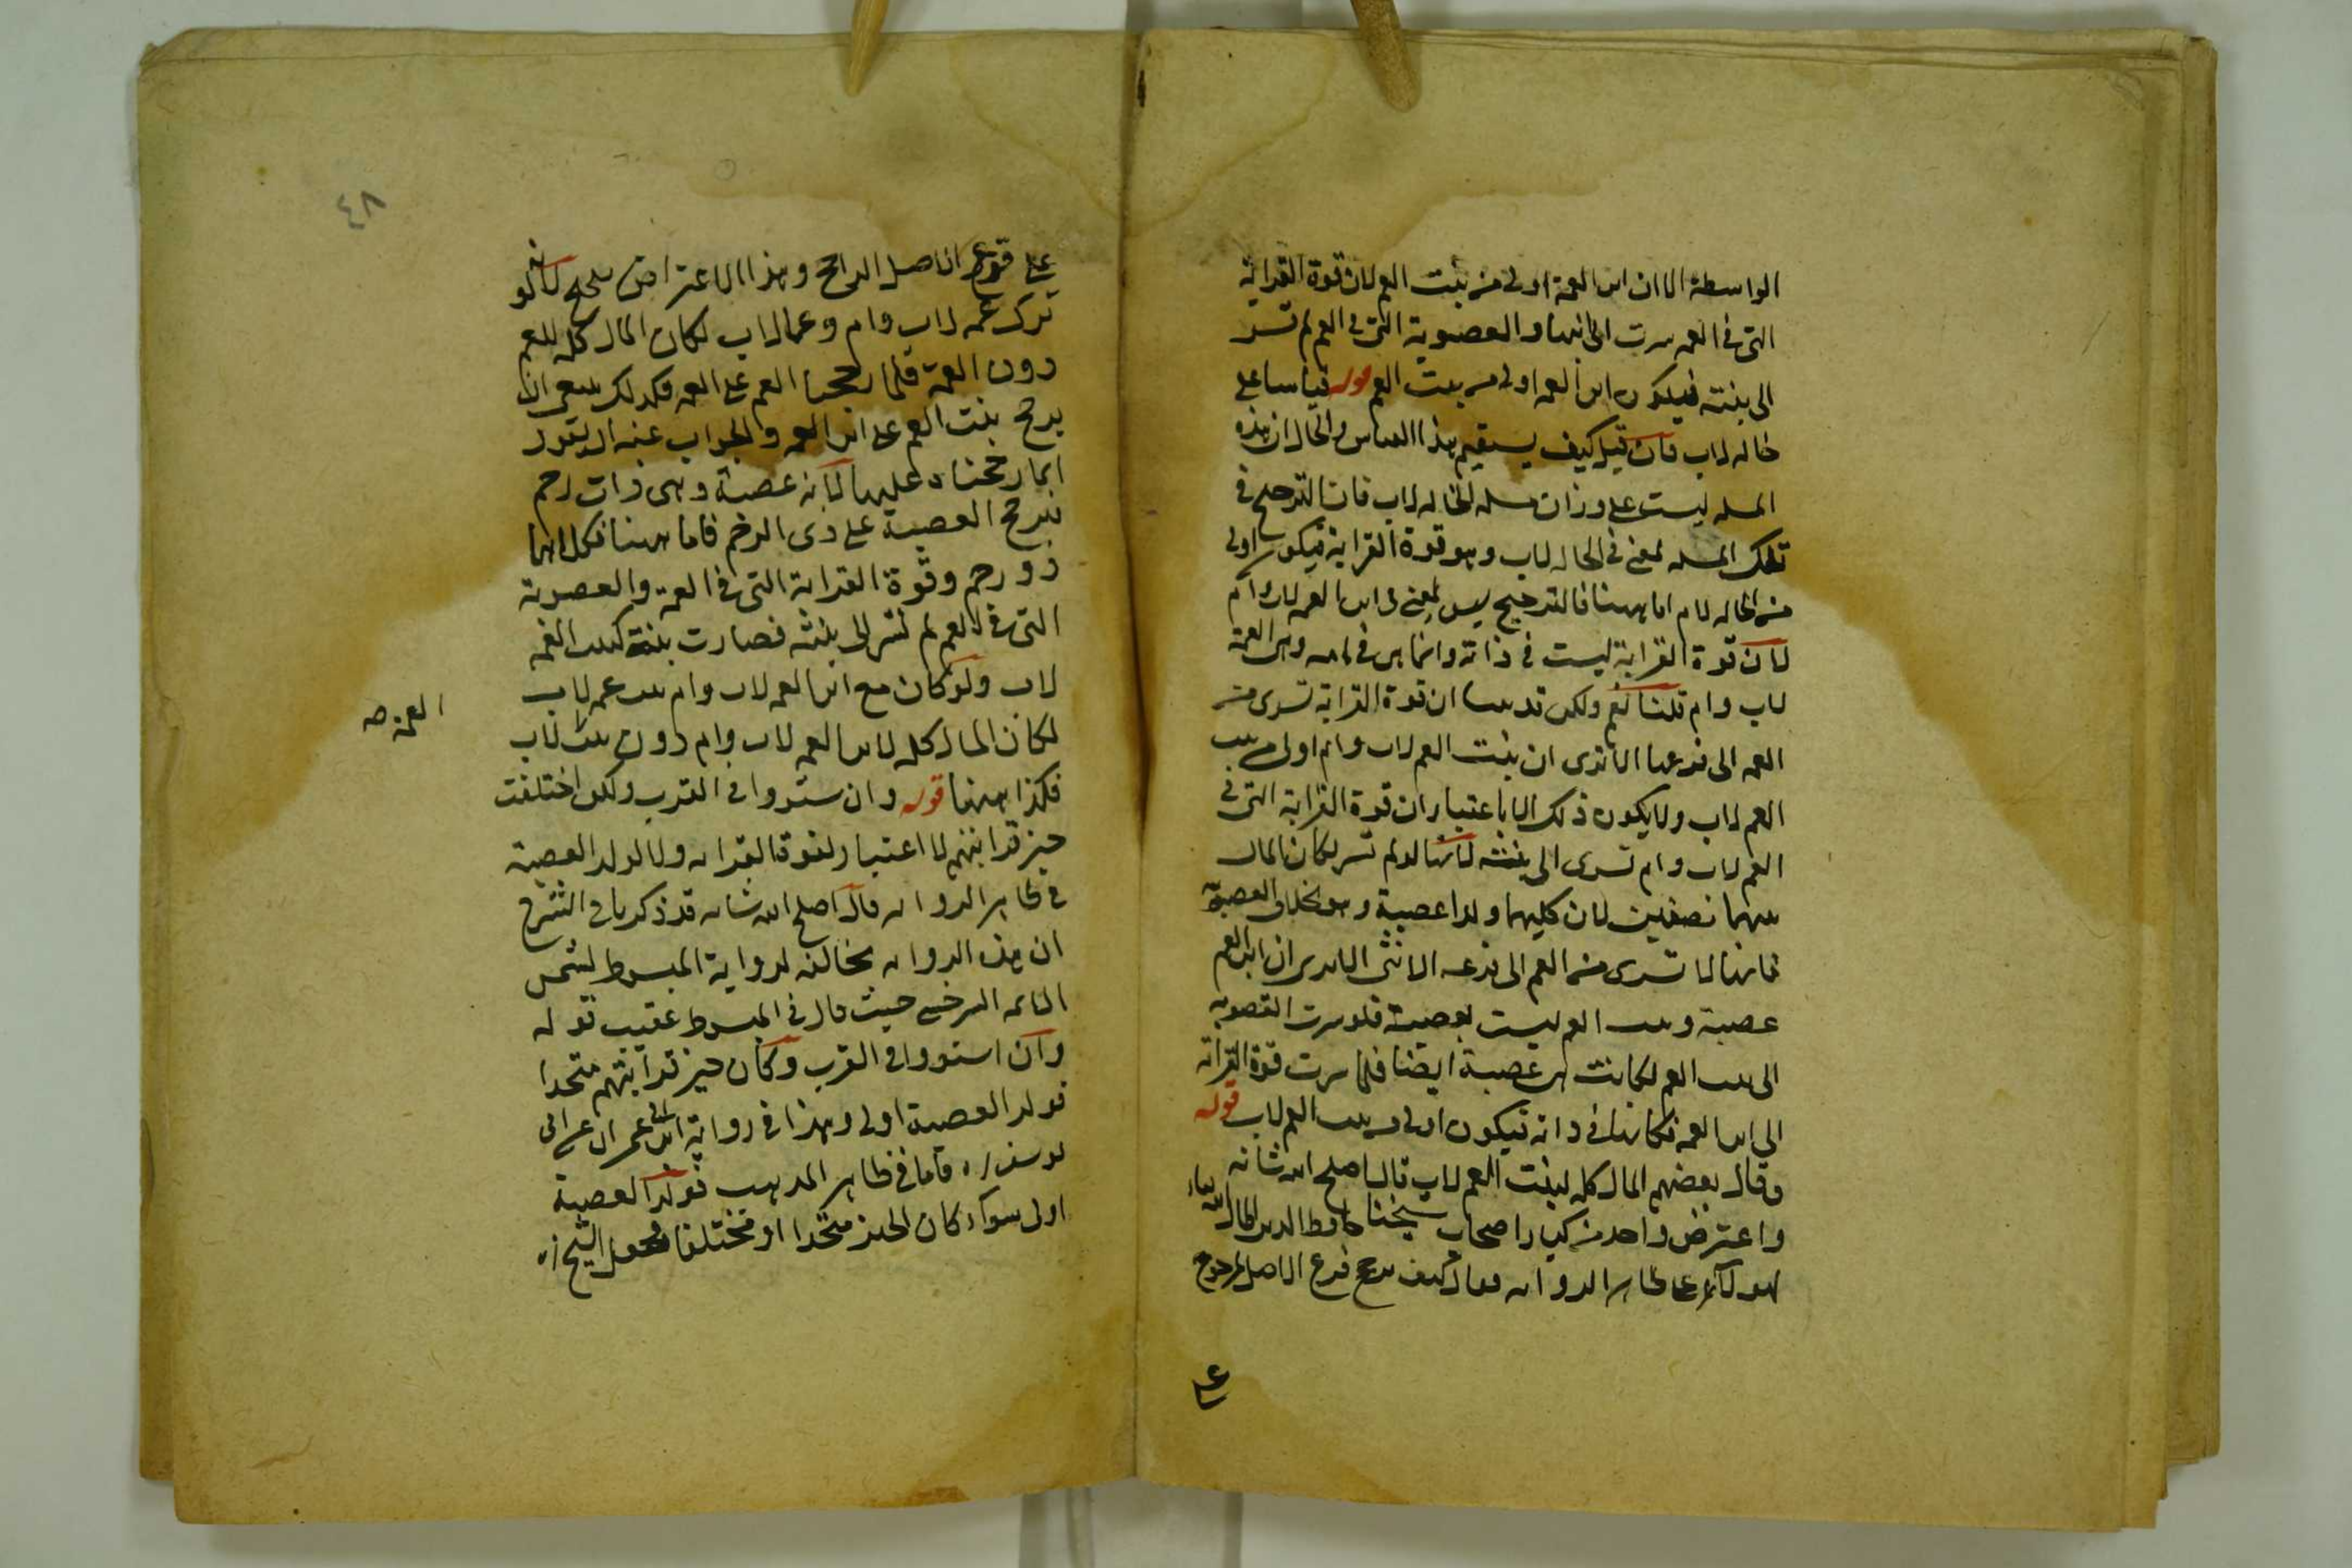 الواسطة الا ان ابن العمة اولى من بنت العم لان قوة القرابة
التى فى العمه سرت الى ابنها والعصوبة التى فى العم لم تسر
الى بنته فيكون ابن العمه اولى من بنت العم قوله قياسا على
خاله لاب فان قيل كيف يستقيم هذا القياس والحال ان هذه
المسله ليست على وزان مسله الخاله لاب فان الترجيح فى
تلك المسله لمعنى فى الخاله لاب وهو قوة القرابة فيكون اولى
من الخاله لام اما ههنا فالترجيح ليس لمعنى فى ابن العمه لاب وام
لان قوة القرابة ليست فى ذاته وانما هى فى امه وهى العمة
لاب وام قلنا نعم ولكن قد بينا ان قوة القرابة تسرى من
العمه الى فرعها الا ترى ان بنت العم لاب وام اولى من بنت
العم لاب ولا يكون ذلك الا باعتبار ان قوة القرابة التى فى
العم لاب وام تسرى الى بنته لانها لو لم تسر لكان المال
بينهما نصفين لان كليهما ولدا عصبة وهو بخلاف العصوبة
فانها لا تسرى من العم الى فرعه الانثى الا يرى ان ابن العم
عصبة وبنت العم ليست بعصبة فلو سرت العصوبه
الى بنت العم لكانت هى عصبة ايضا فلما سرت قوة القرابة
الى ابن العمه فكانها فى ذاته فيكون اولى من بنت العم لاب قوله
وقال بعضهم المال كله لبنت العم لاب قال اصلح الله شانه
واعترض واحد من كبار اصحاب شيخنا حافظ الدين
على ظاهر الروايه فقال كيف يرجح فرع الاصل المرجوح
على
٤٨
على فرع الاصل الراجح وهذا الاعتراض لانه لو
ترك عمه لاب وام وعما لاب لكان المال كله للعم
دون العمة فلما رجحنا العم على العمه فكذلك ينبغى ان
يرجح بنت العم على ابن العمه والجواب عنه ان يقول
انما رجحناه عليها لانه عصبة وهى ذات رحم
فيرجح العصبة على ذى الرحم فاما ههنا فكلاهما
ذو رحم وقوة القرابة التى فى العمة والعصوبة
التى فى العم لم تسر الى بنته فصارت بنته كبنت العمه
لاب ولو كان مع ابن العمه لاب وام بنت عمه لاب
لكان المال كله لابن العمه لاب وام دون بنت لاب
العمة صح
فكذا ههنا قوله وان ستووا فى القرب ولكن اختلفت
حيز قرابتهم لا اعتبار لقوة القرابه ولا لولد العصبة
فى ظاهر الروايه قال اصلح الله شانه قد ذكرنا فى الشرح
ان هذه الروايه مخالفه لرواية المبسوط لشمس
الائمه السرخسى حيث قال فى المبسوط عقيب قوله
وان استووا فى القرب وكان حيز قرابتهم متحدا
فولد العصبة اولى وهذا فى رواية ابن ابى عمران عن ابى
يوسف فاما فى ظاهر المذهب فولد العصبة
اولى سواء كان الحيز متحدا او مختلفا فجعل الشيخ